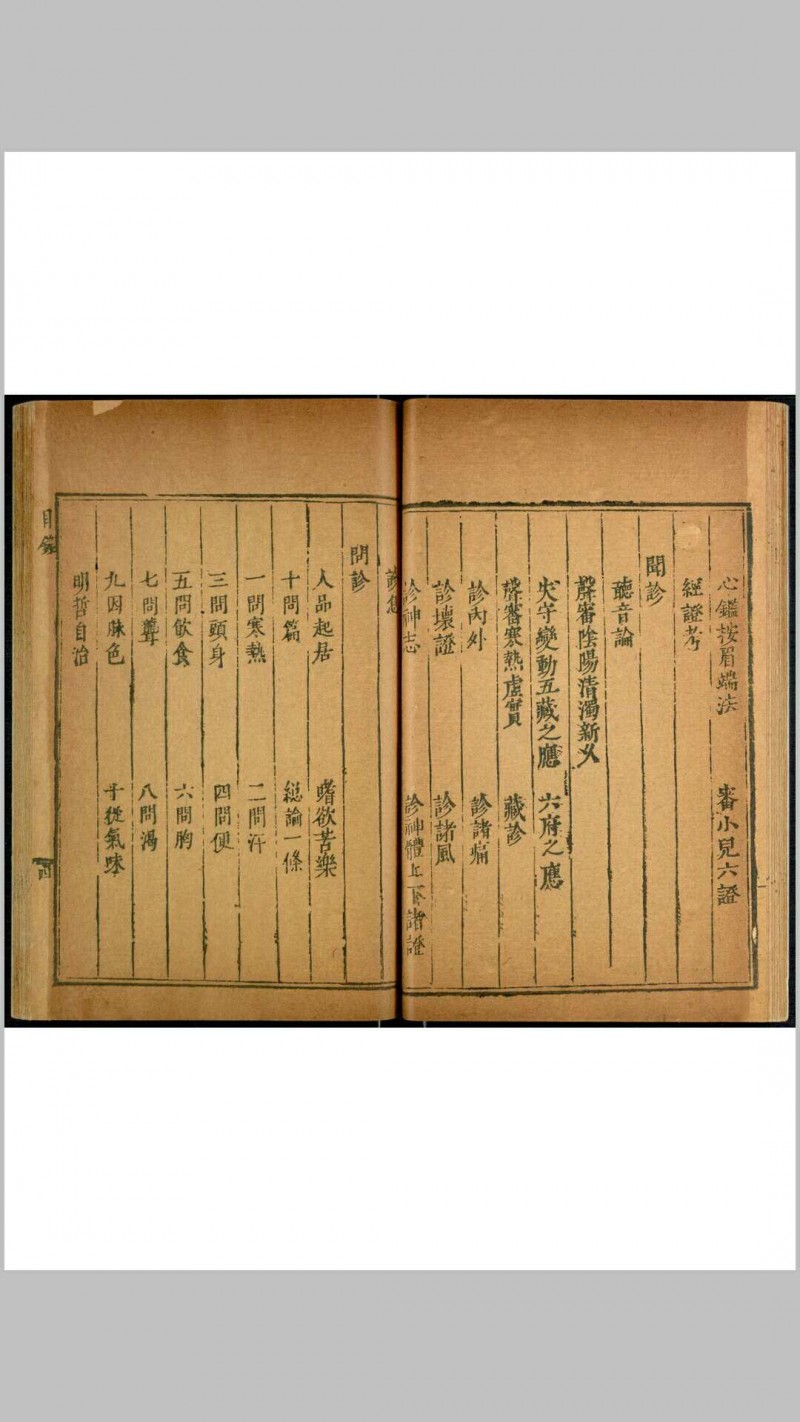 心鑑按眉端法　審小兒六證
經證考
聞診
聽音論
聲審陰陽清濁新义
失守變動五藏之應　六府之應
聲審寒熱虛實　藏診
診內外　診諸痛
診壞證　診諸風
診神志　診神體上下諸證
診息
問診
人品起居　嗜欲苦樂
十問篇　總論一條
一問寒熱　二問汗
三問頭身　四問便
五問飲食　六問胸
七問聾　八問渴
九因脉色　十從氣味
明哲自治
目錄